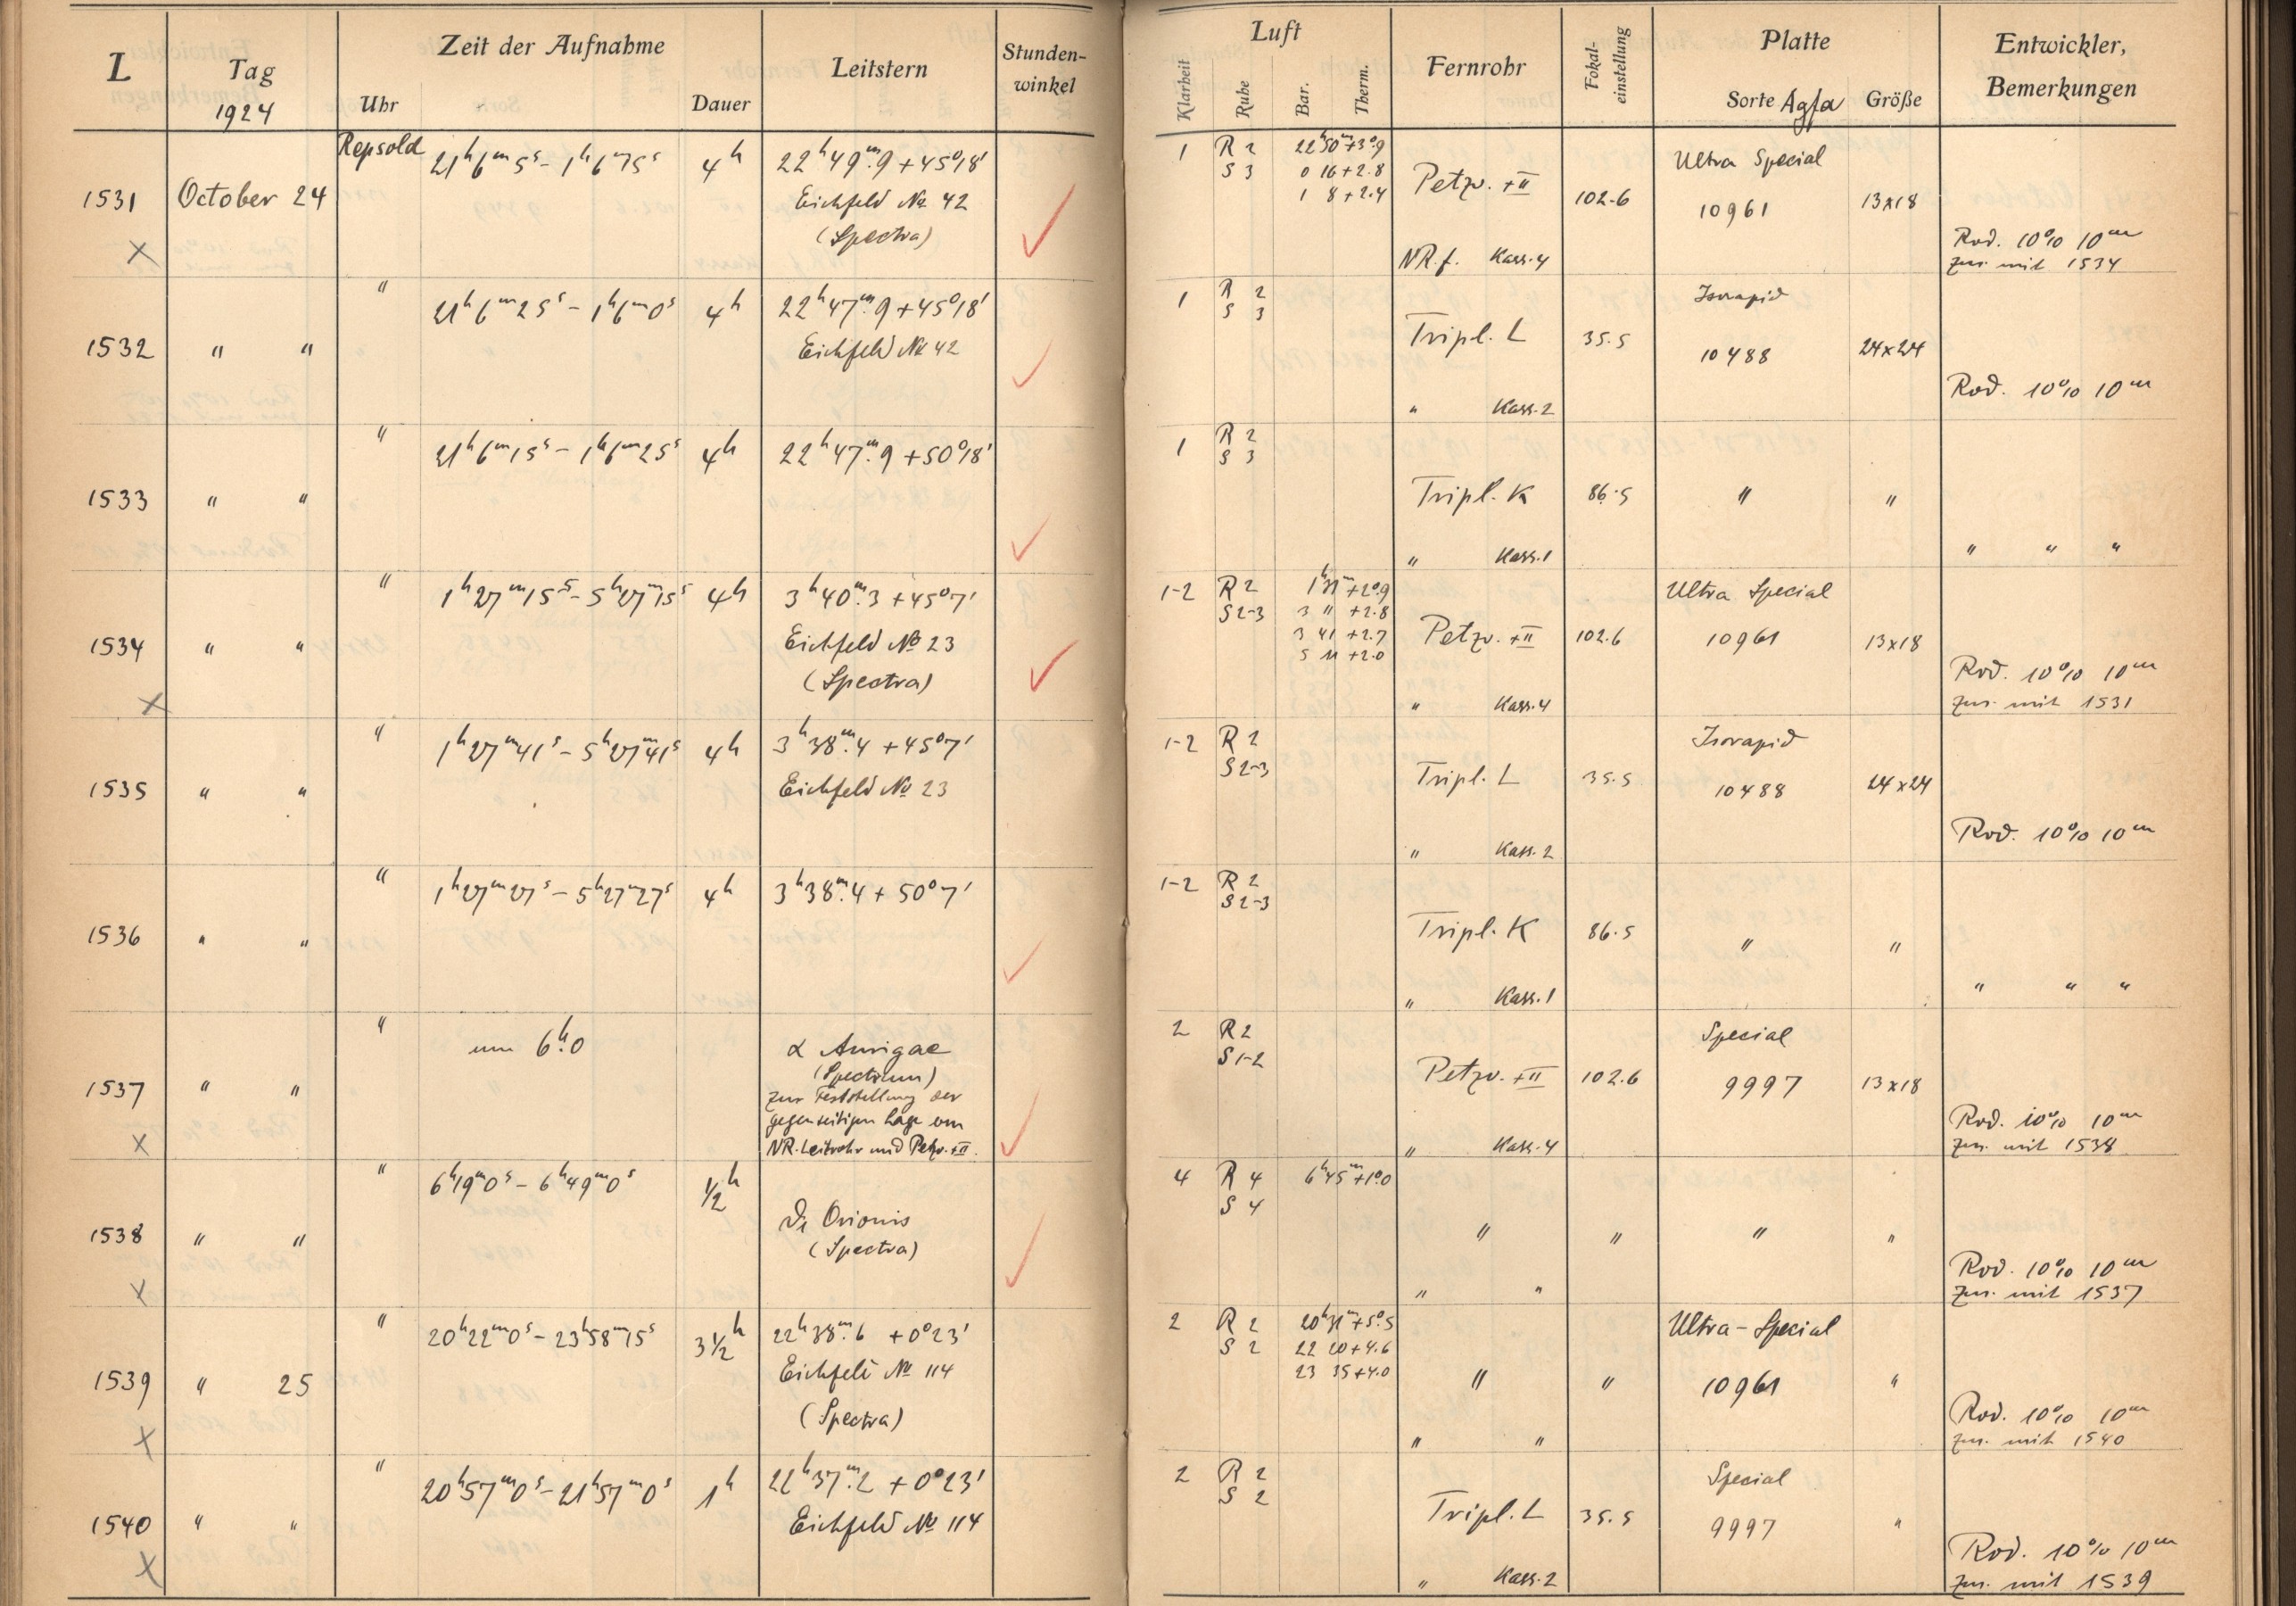 L
Tag
1924
Zeit der Aufnahme
Uhr
Dauer
Leitstern
Stunden-
winkel
Luft
Klarheit
Ruhe
Bar.
Therm.
Fernrohr
Fokal-
einstellung
Platte
Sorte Agfa
Größe
Entwickler,
Bemerkungen
1531 October 24 Repsold 21h6m5s – 1h6m5s 4h 22h49m.9 +45°18'
Eichfeld No 42
(Spectra)
1 R 2 22h50m+3°.9 Petzv. +II 102.6 Ultra Special
S 3 0 16+2.8 10961 13x18
1 8+2.4
NR.f. Kass.4 Rod. 10% 10m
zus. mit 1534
X
1532 " " " 21h6m25s – 1h6m0s 4h 22h47m.9 +45°18'
Eichfeld No 42
1 R 2 Tripl. L 35.5 Isorapid
S 3 10488 24x24
" Kass.2 Rod. 10% 10m
1533 " " " 21h6m15s – 1h6m25s 4h 22h47m.9 +50°18'
1 R 2 Tripl. K 86.5 " "
S 3
" Kass.1 " " "
1534 " " " 1h27m15s – 5h27m15s 4h 3h40m.3 +45°7'
Eichfeld No 23
(Spectra)
1-2 R 2 1h31m+2°.9 Petzv. +II 102.6 Ultra Special
S 2-3 3 11 +2.8 10961 13x18
3 41 +2.7
5 11 +2.0
" Kass.4 Rod. 10% 10m
zus. mit 1531
X
1535 " " " 1h27m41s – 5h27m41s 4h 3h38m.4 +45°7'
Eichfeld No 23
1-2 R 2 Tripl. L 35.5 Isorapid
S 2-3 10488 24x24
" Kass.2 Rod. 10% 10m
1536 " " " 1h27m27s – 5h27m27s 4h 3h38m.4 + 50°7'
1-2 R 2 Tripl. K 86.5 " "
S 2-3
" Kass.1 " " "
1537 " " " um 6h.0 α Aurigae
(Spectrum)
zur Feststellung der
gegenseitigen Lage von
NR.Leitrohr und Petzv. +II.
2 R 2 Petzv. +II 102.6 Special
S 1-2 9997 13x18
" Kass.4 Rod. 10% 10m
zus. mit 1538
X
1538 " " " 6h19m0s – 6h49m0s 1/2h ϑ1 Orionis
(Spectra)
4 R 4 6h45m+1°.0 " " " "
S 4
" " Rod. 10% 10m
zus. mit 1537
X
1539 " 25 " 20h22m0s – 23h58m15s 3 1/2h 22h38m.6 +0°23'
Eichfeld No 114
(Spectra)
2 R 2 20h31m+5°.5 " " Ultra-Special
S 2 22 20+4.6 10961 "
23 35+4.0
" " Rod. 10% 10m
zus. mit 1540
X
1540 " " " 20h57m0s – 21h57m0s 1h 22h37m.2 +0°23'
Eichfeld No 114
2 R 2 Tripl. L 35.5 Special
S 2 9997 "
" Kass.2 Rod. 10% 10m
zus. mit 1539
X